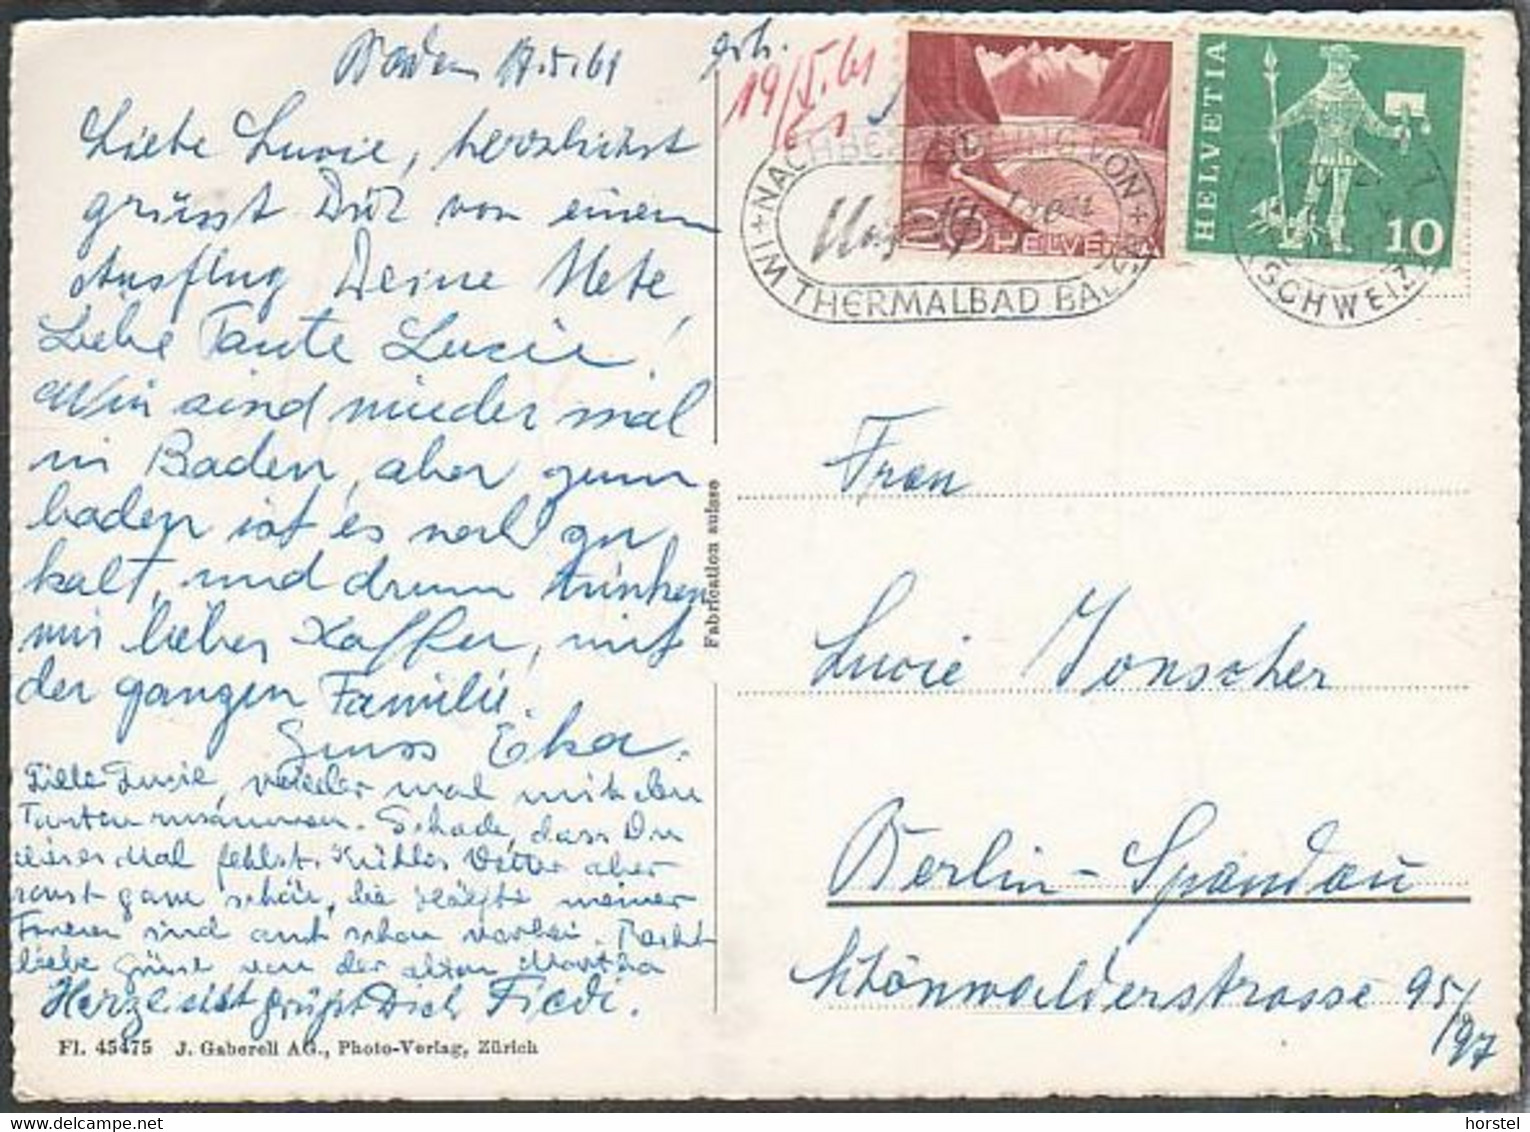 Baden 17.5.61
erh.
19/5.61
Liebe Lucie, herzlichst
grüsst Dich von einem
Ausflug Deine Mete
Liebe Tante Lucie!
Wir sind wieder mal
in Baden, aber zum
baden ist es noch zu
kalt, und drum trinken
wir lieber Kaffee, mit
der ganzen Familie.
Gruss Eka.
Liebe Lucie, wieder mal mit den
Tanten zusammen. Schade, dass Du
dieses Mal fehlst. Kühles Wetter aber
sonst ganz schön, die Hälfte meiner
Ferien sind auch schon vorbei. Recht
liebe Grüsse von der alten Martha
Herzlichst grüßt Dich Fiedi.
Fl. 45475 J. Gaberell AG., Photo-Verlag, Zürich
Fabrication suisse
NACHBEHANDLUNG VON
IM THERMALBAD BADEN
20 HELVETIA
HELVETIA 10
(SCHWEIZ)
Frau
Lucie Jonscher
Berlin-Spandau
Schönwalderstrasse 95/
97
horstel